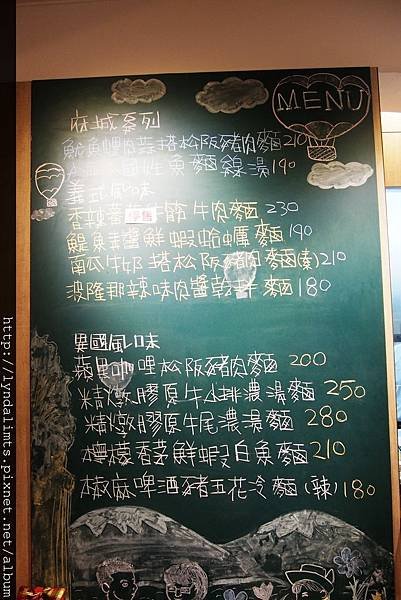 MENU
府城系列
魚蝦肉燥搭松阪豬肉麵210
魚麵線湯190
義式風味
香辣蕃茄牛筋牛肉麵 230
鯷魚羊醬鮮蝦蛤蠣麵 190
南瓜牛奶搭松阪豬肉麵(素)210
波隆那辣味肉醬乾拌麵 180
異國風味
蘋果咖哩松阪豬肉麵 200
精燉膠原牛小排濃湯麵 250
精燉膠原牛尾濃湯麵 280
檸檬香茅鮮蝦白魚麵210
椒麻啤酒豬五花冷麵(辣)180
http://lyndalimts.pixnet.net/album